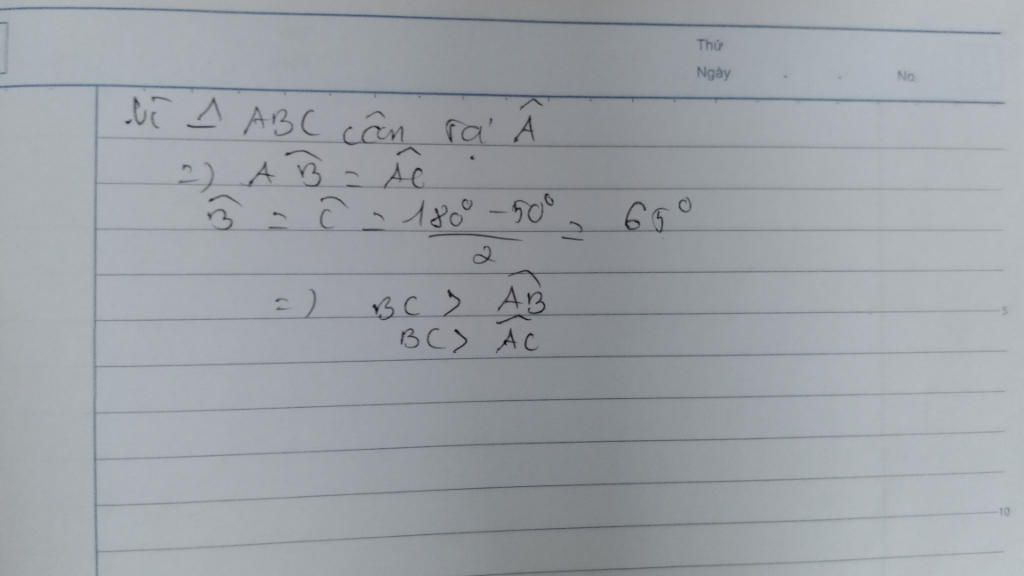 Thứ
Ngày . . No.
Vì Δ ABC cân tại Â
=) A B̂ = ÂC
B̂ = Ĉ = (180° - 50°)/2 = 65°
=) BC > A͡B
5
BC > A͡C
10